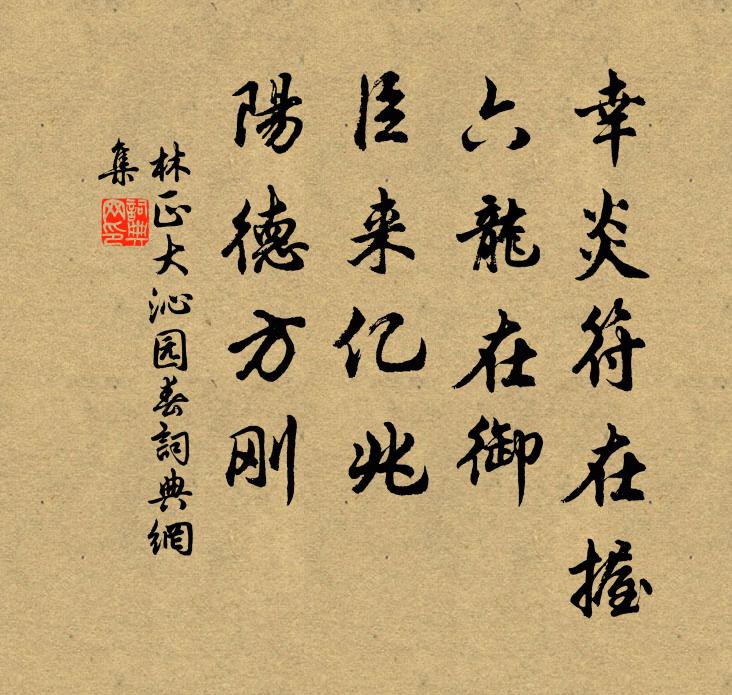 幸炎符在握
六龍在御
臣来亿兆
陽德方刚
林正大沁园春詞典網
集
詞典网印